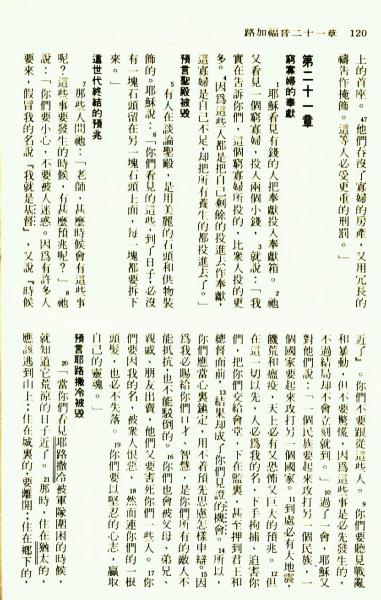 路加福音二十一章　120
上的首座。47他們吞沒了寡婦的房產，又用冗長的
禱告作掩飾。這等人必受更重的刑罰。」
第二十一章
窮寡婦的奉獻
1耶穌看見有錢的人把奉獻投入奉獻箱。2祂
又看見一個窮寡婦，投入兩個小錢，3就說：「我
實在告訴你們，這個窮寡婦所投的，比衆人投的更
多。4因爲這些人都是把自己剩餘的投進去作奉獻，
這寡婦是自己不足，却把所有養生的都投進去了。」
預言聖殿被毀
5有人在談論聖殿，是用美麗的石頭和供物裝
飾的。耶穌說：6「你們看見的這些，到了日子，必沒
有一塊石頭留在另一塊石頭上面，每一塊都要拆下
來。」
這世代終結的預兆
7那些人問祂：「老師，甚麼時候會有這些事
呢？這些事要發生的時候，有甚麼預兆呢？」8祂
說：「你們要小心，不要被人迷惑。因爲有許多人
要來，假冒我的名說『我就是基督』，又說『時候
近了』。你們不要跟從這些人。9你們要聽見戰亂
和暴動，但不要驚慌，因爲這些事是必先發生的，
不過結局却不會立刻就到。」10過了一會，耶穌又
對他們說：「一個民族要起來攻打另一個民族，一
個國家要起來攻打另一個國家。11到處必有大地震、
饑荒和瘟疫，天上必有又恐怖又巨大的預兆。12但
在這一切以先，人必爲我的名，下手拘捕、迫害你
們，把你們交給會堂，下在監裏，甚至押到君王和
總督面前，13結果却成了你們見證的機會。14所以，
你們應當心裏鎮定，用不着預先思慮怎樣申辯。15因
爲我必賜給你們口才、智慧，是你們所有的敵人不
能抵抗也不能駁倒的。16你們也會被父母、弟兄、
親戚、朋友出賣，他們又要害死你們一些人。17你
們要因我的名，被衆人恨惡，18然而連你們的一根
頭髮，也必不失落。19你們要以堅忍的心志，贏取
自己的靈魂。」
預言耶路撒冷被毀
20「當你們看見耶路撒冷被軍隊圍困的時候，
就知道它荒涼的日子近了。21那時，住在猶太的
應該逃到山上；住在城裏的要離開；住在鄉下的